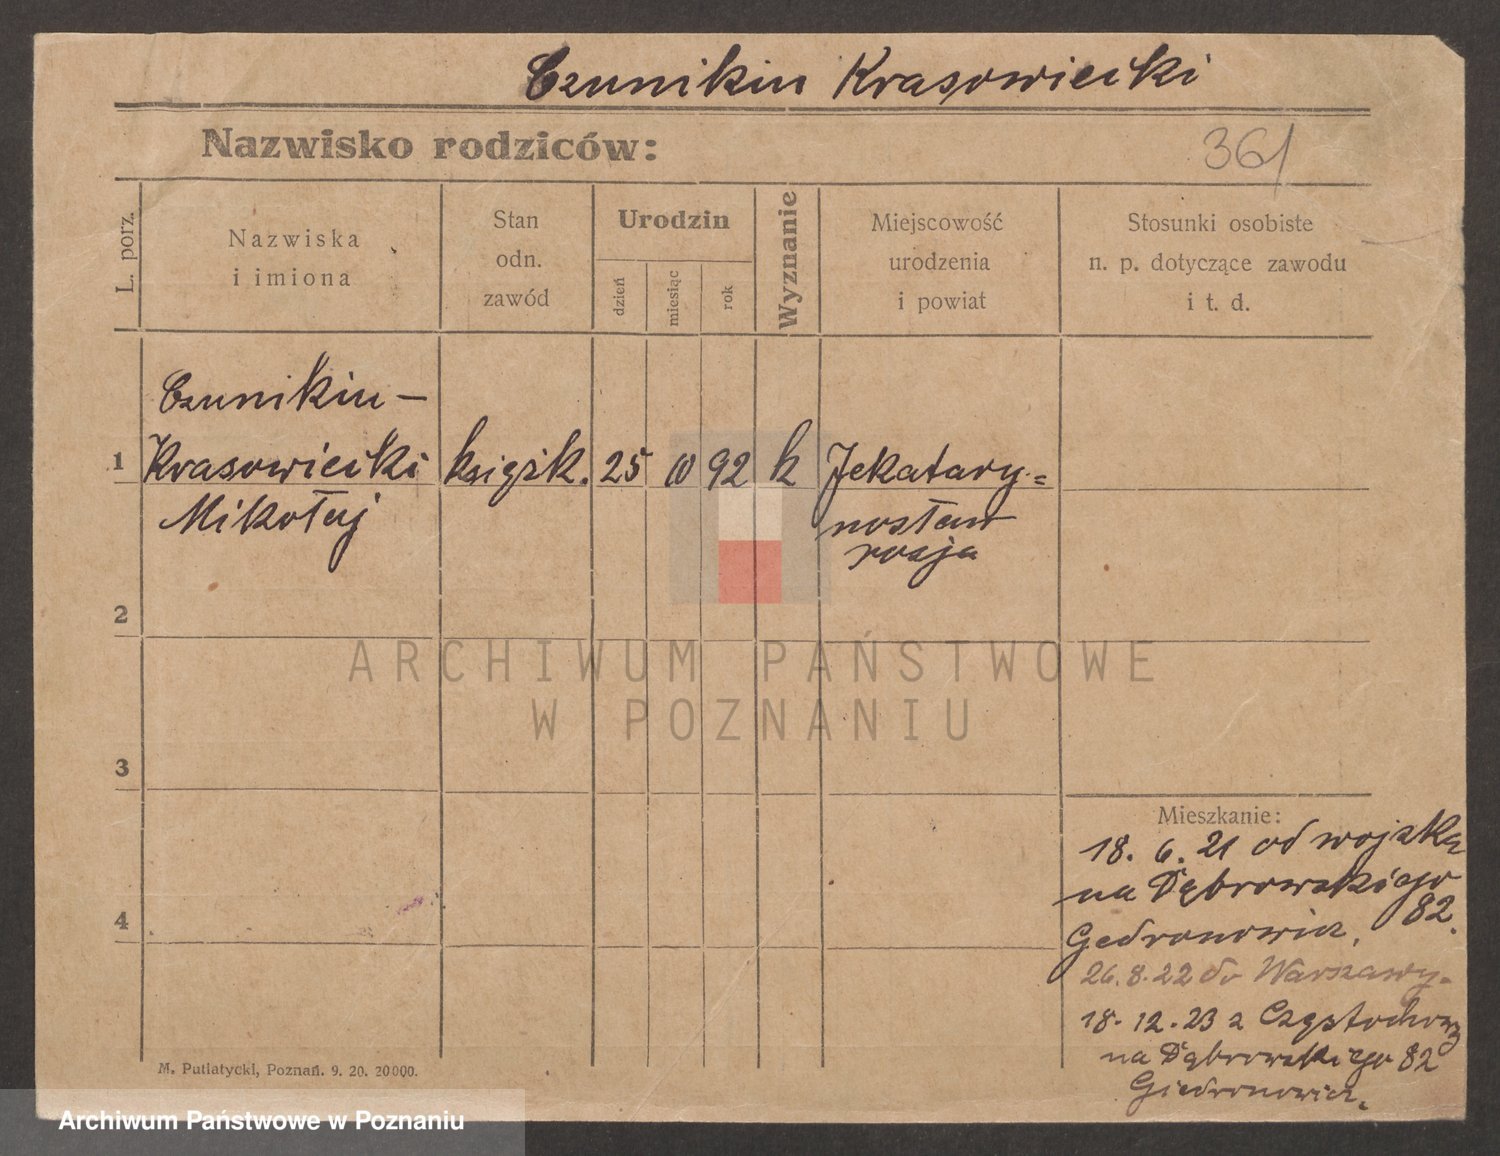 Czunikin Krasowiecki
Nazwisko rodziców:
361
L. porz.
Nazwiska
i imiona
Stan
odn.
zawód
Urodzin
dzień
miesiąc
rok
Wyznanie
Miejscowość
urodzenia
i powiat
Stosunki osobiste
n. p. dotyczące zawodu
i t. d.
Czunikin –
1 Krasowiecki książk. 25 92 k Jekatary-
Mikołaj nosław
rosja
2
ARCHIWUM PAŃSTWOWE
W POZNANIU
3
Mieszkanie:
18. 6. 21 od wojska
na Dąbrowskiego
82.
4
Gedronowicz.
26.8.22 do Warszawy.
18.12.23 z Częstochowy
na Dąbrowskiego 82
Giedronowicz.
M. Putiatycki, Poznań. 9. 20. 20000.
Archiwum Państwowe w Poznaniu